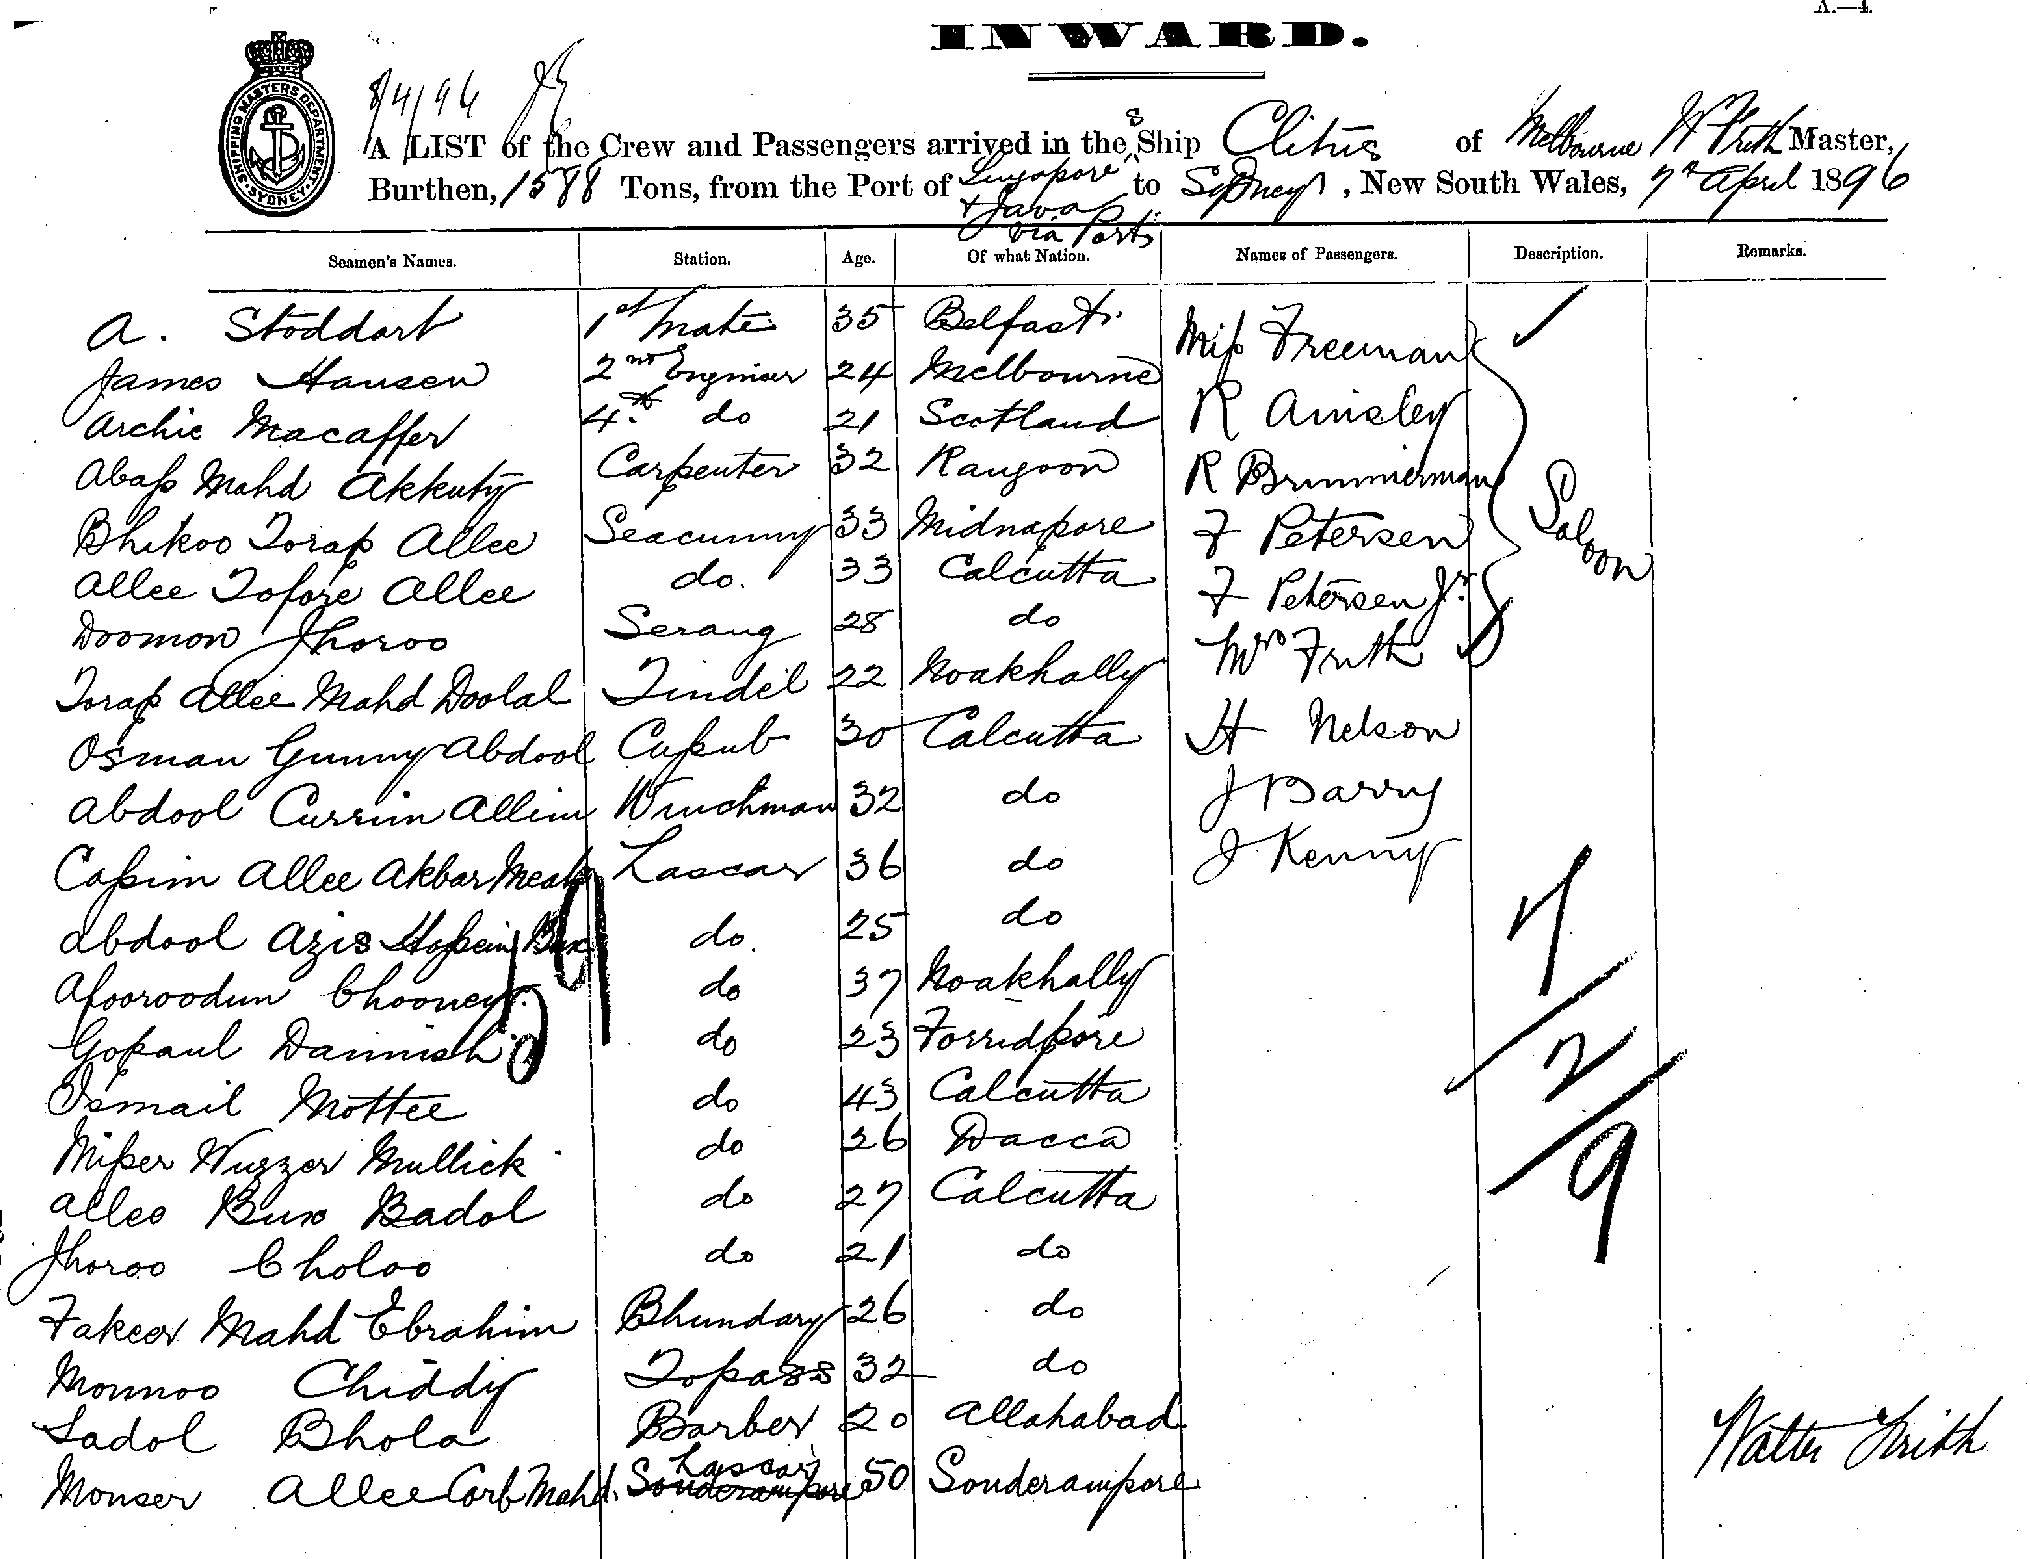 A.—4.
INWARD.
SHIPPING MASTERS DEPARTMENT. SYDNEY.
8/4/96
A LIST of the Crew and Passengers arrived in the S Ship Clitus of Melbourne W Frith Master,
Burthen, 1588 Tons, from the Port of Singapore & Java via Ports to Sydney, New South Wales, 7th April 1896
Seamen's Names. Station. Age. Of what Nation. Names of Passengers. Description. Remarks.
A. Stoddart 1st Mate 35 Belfast Miss Freeman
James Hansen 2nd Engineer 24 Melbourne R Ainsley
Archie Macaffer 4th do 21 Scotland R Brimmerman
Abass Mahd Akkuty Carpenter 32 Rangoon F Petersen Saloon
Bhikoo Torap Allee Seacunny 33 Midnapore F Petersen Jr
Allee Tofore Allee do. 33 Calcutta Mrs Frith
Doomon Jhoroo Serang 28 do
Torap Allee Mahd Doolal Tindel 22 Noakhally
Osman Gunny Abdool Cussub 30 Calcutta H Nelson
Abdool Currim Allim Winchman 32 do J Barry
Cassim Allee Akbar Meah Lascar 36 do J Kenny
Abdool Azis Hossein Bux do. 25 do 7
Afooroodun Chooney do 37 Noakhally
Gopaul Dannish do 23 Forridpore 2
Ismail Mottee do 43 Calcutta
Misser Wuzzer Mullick do 26 Dacca 9
Allee Bux Badol do 27 Calcutta
Jhoroo Choloo do 21 do
Fakeer Mahd Ebrahim Bhundary 26 do
Monnoo Chiddy Topass 32 do
Sadol Bhola Barber 20 Allahabad Walter Frith
Monser Allee Corb Mahd. Lascar Sonderampore 50 Sonderampore